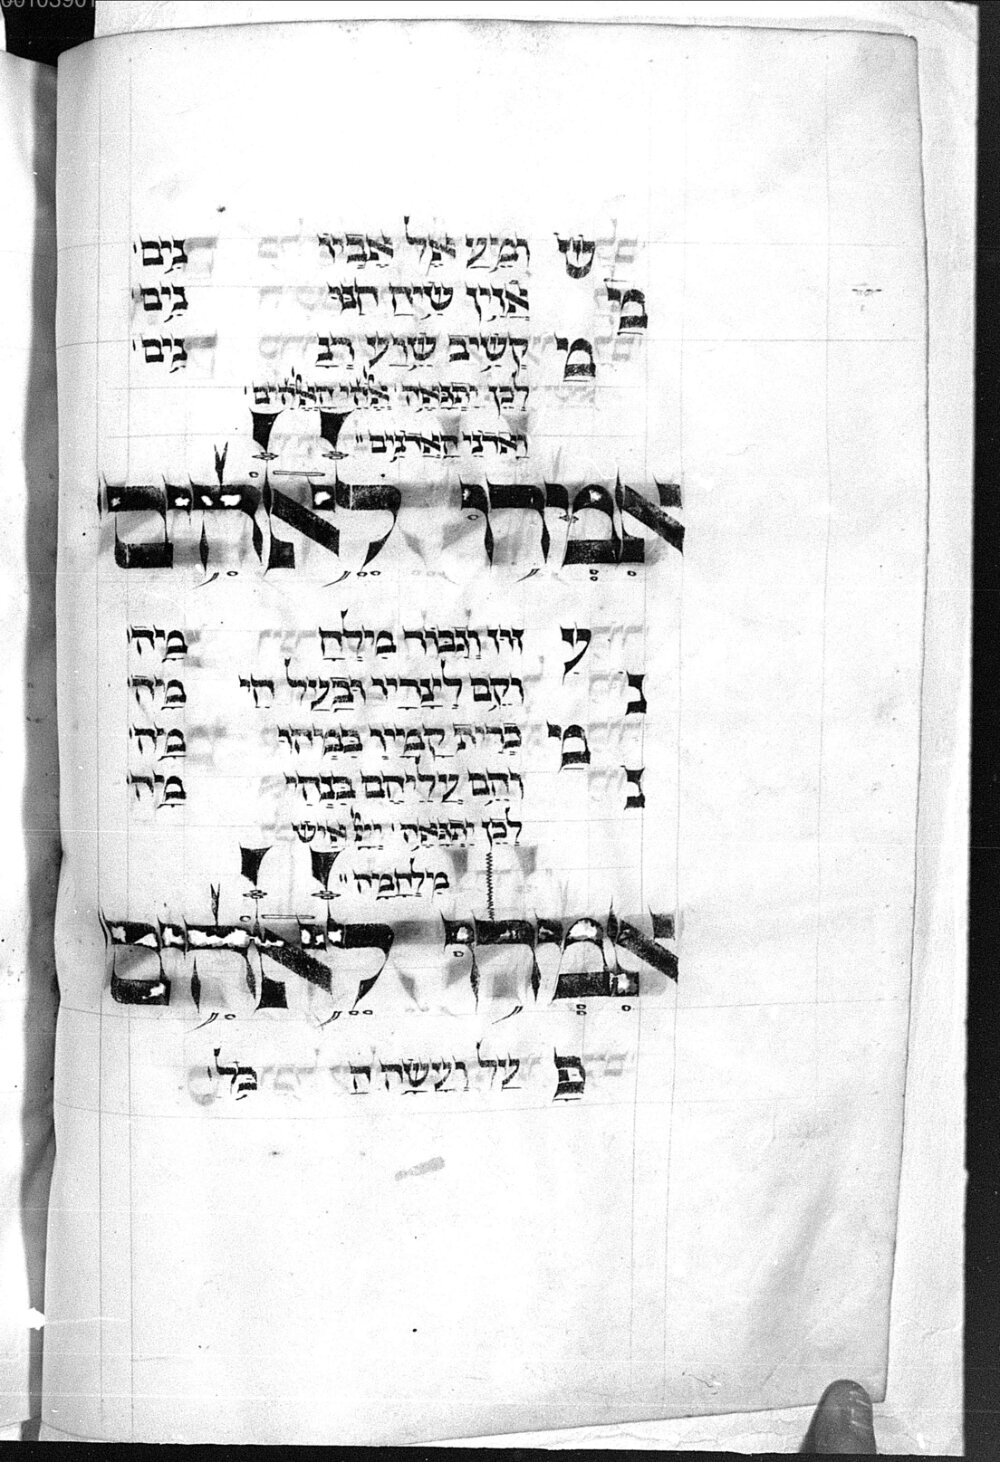 ש ומע אל אביו נים
מ אזין שיח חנו נים
מי קשיב שועי רב נים
לכן יתגאה אלהי האלהים
ואדני האדנים
אמרו לאלהים
ע זוז וגבור מלח מה
נ וקם לצריו ובעל ח מה
מ כרית קמיו במהו מה
נ והם עליהם בנהי מה
לכן יתגאה ייי איש
מלחמה
אמרו לאלהים
פ על ועשה ה כל